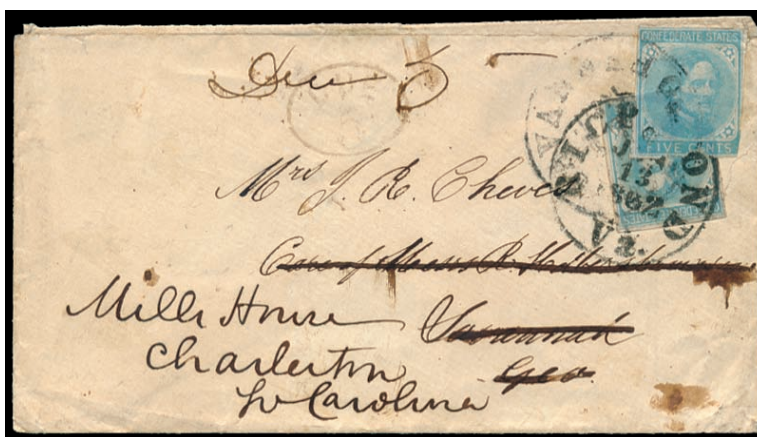 CONFEDERATE STATES
FIVE CENTS
Due 5
RICHMOND
13
1862
Va.
Mrs J. R. Cheves
Care of Messrs R.
Mills House
Savannah
Charleston
Geo.
So Carolina